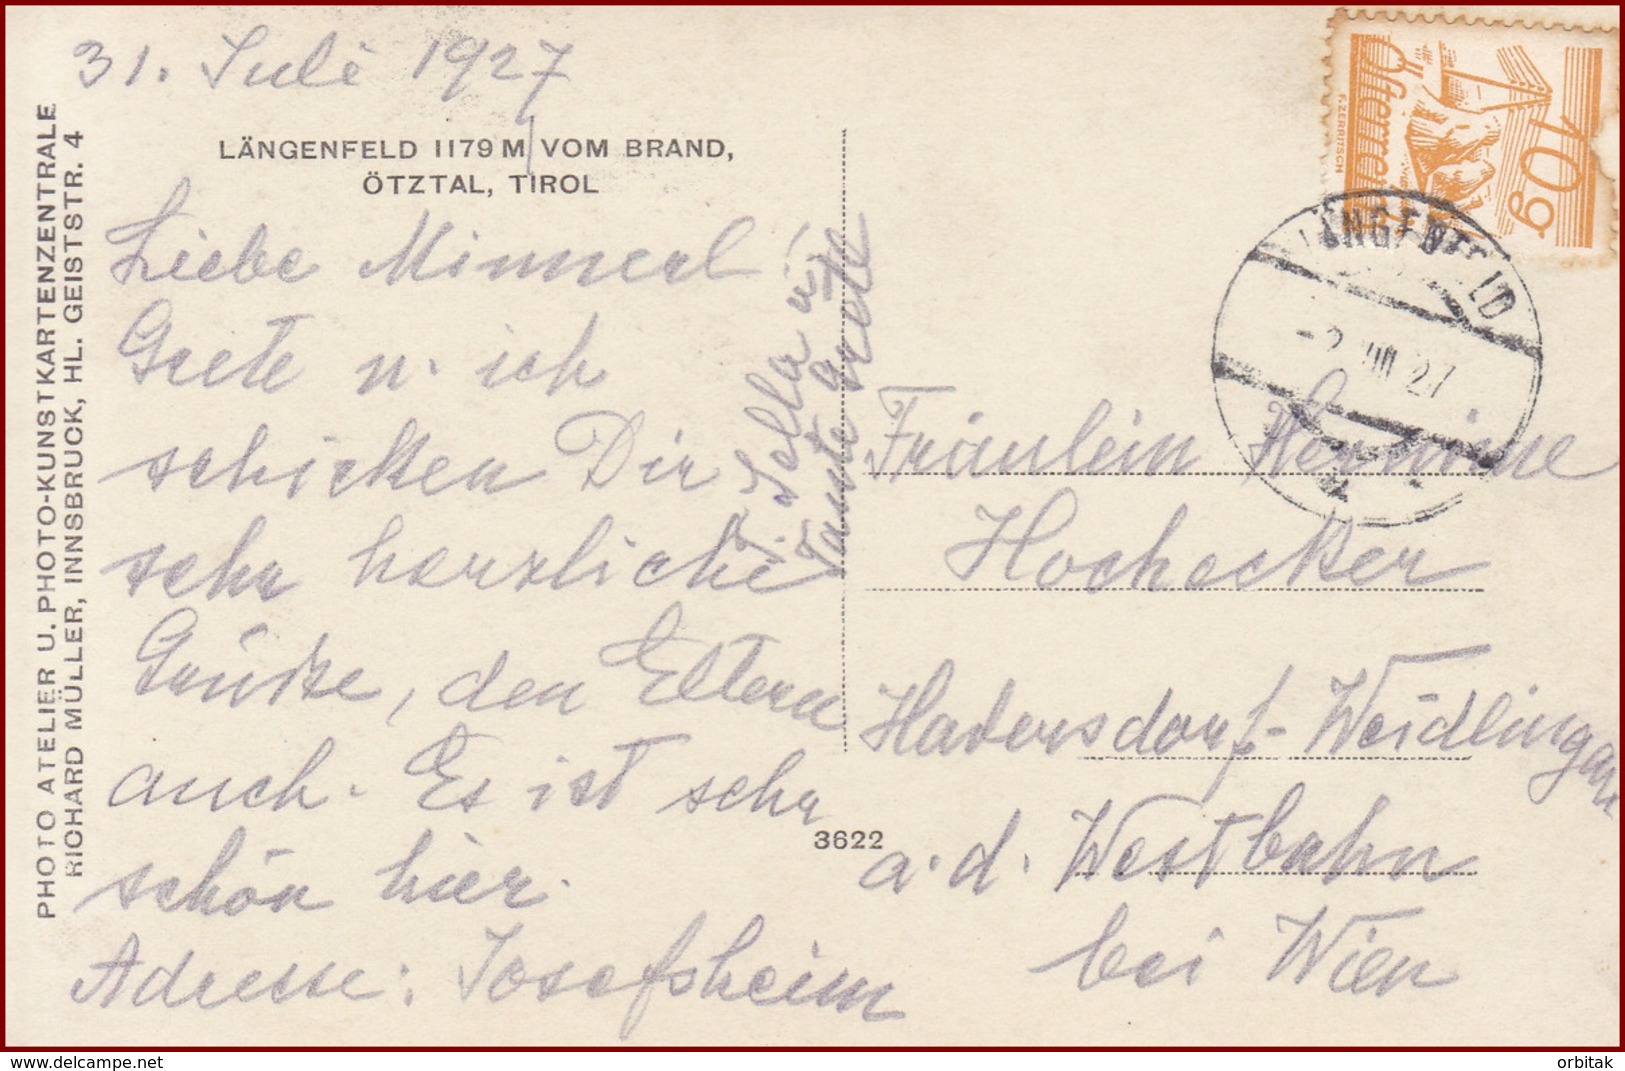 31. Juli 1927
LÄNGENFELD 1179 M VOM BRAND,
ÖTZTAL, TIROL
Liebe Minnerl!
Grete u. ich
schicken Dir
sehr herzliche
Grüße, den Eltern
auch. Es ist sehr
schön hier.
Adresse: Josefsheim
Jella u.
Tante Grete
PHOTO ATELIER U. PHOTO-KUNSTKARTENZENTRALE
RICHARD MÜLLER, INNSBRUCK, HL. GEISTSTR. 4
3622
10g
Österreich
F.ZERRITSCH
LÄNGENFELD
-2.VIII.27
Fräulein Hermine
Hochecker
Hadersdorf-Weidlingau
a.d. Westbahn
bei Wien
www.delcampe.net
orbitak